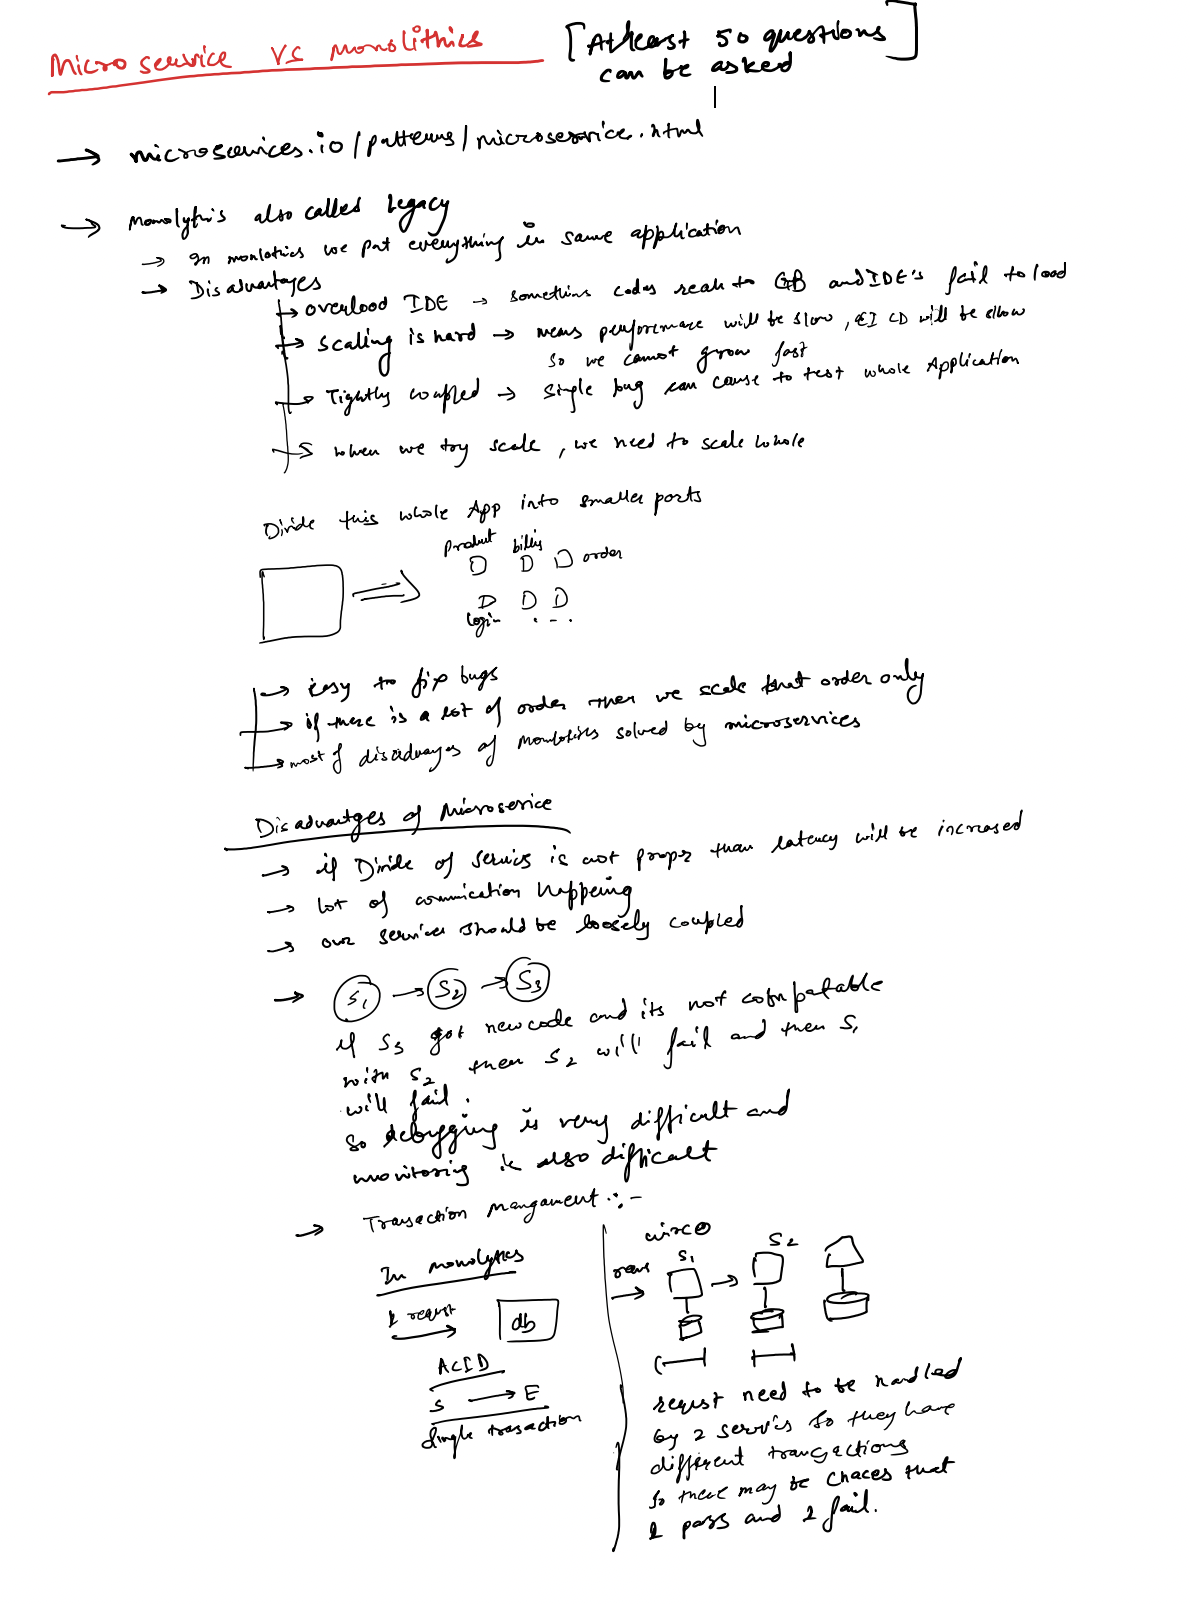 Micro service VS Monolithics [Atleast 50 questions
can be asked]
→ microservices.io/patterns/microservice.html
→ Monolythis also called Legacy
→ In monlothics we put everything in same application
→ Disadvantages
→ overload IDE → somethins codes reah to GB and IDE's fail to load
→ scaling is hard → means performace will be slow, CI CD will be slow
so we cannot grow fast
→ Tightly coupled → single bug can cause to test whole Application
→ when we try scale, we need to scale whole
Divide this whole App into smaller parts
product billing
order
login . - .
→ easy to fix bugs
→ if there is a lot of order then we scale that order only
→ most of disadvages of monolothis solved by microservices
Disadvantges of Microserice
→ if Divide of servics is not proper than latency will be increased
→ lot of comunication happeing
→ our services should be loosely coupled
→ S1 → S2 → S3
if S3 got new code and its not compatable
with S2 then S2 will fail and then S1
will fail.
so debugging is very difficult and
monitoring is also difficult
→ Transaction Mangament :-
In monolythes
1 requst db
ACID
S → E
Single trasaction
micro
S1 → S2
requst need to be handled
by 2 servics so they have
different transactions
so there may be chaces that
1 pass and 1 fail.